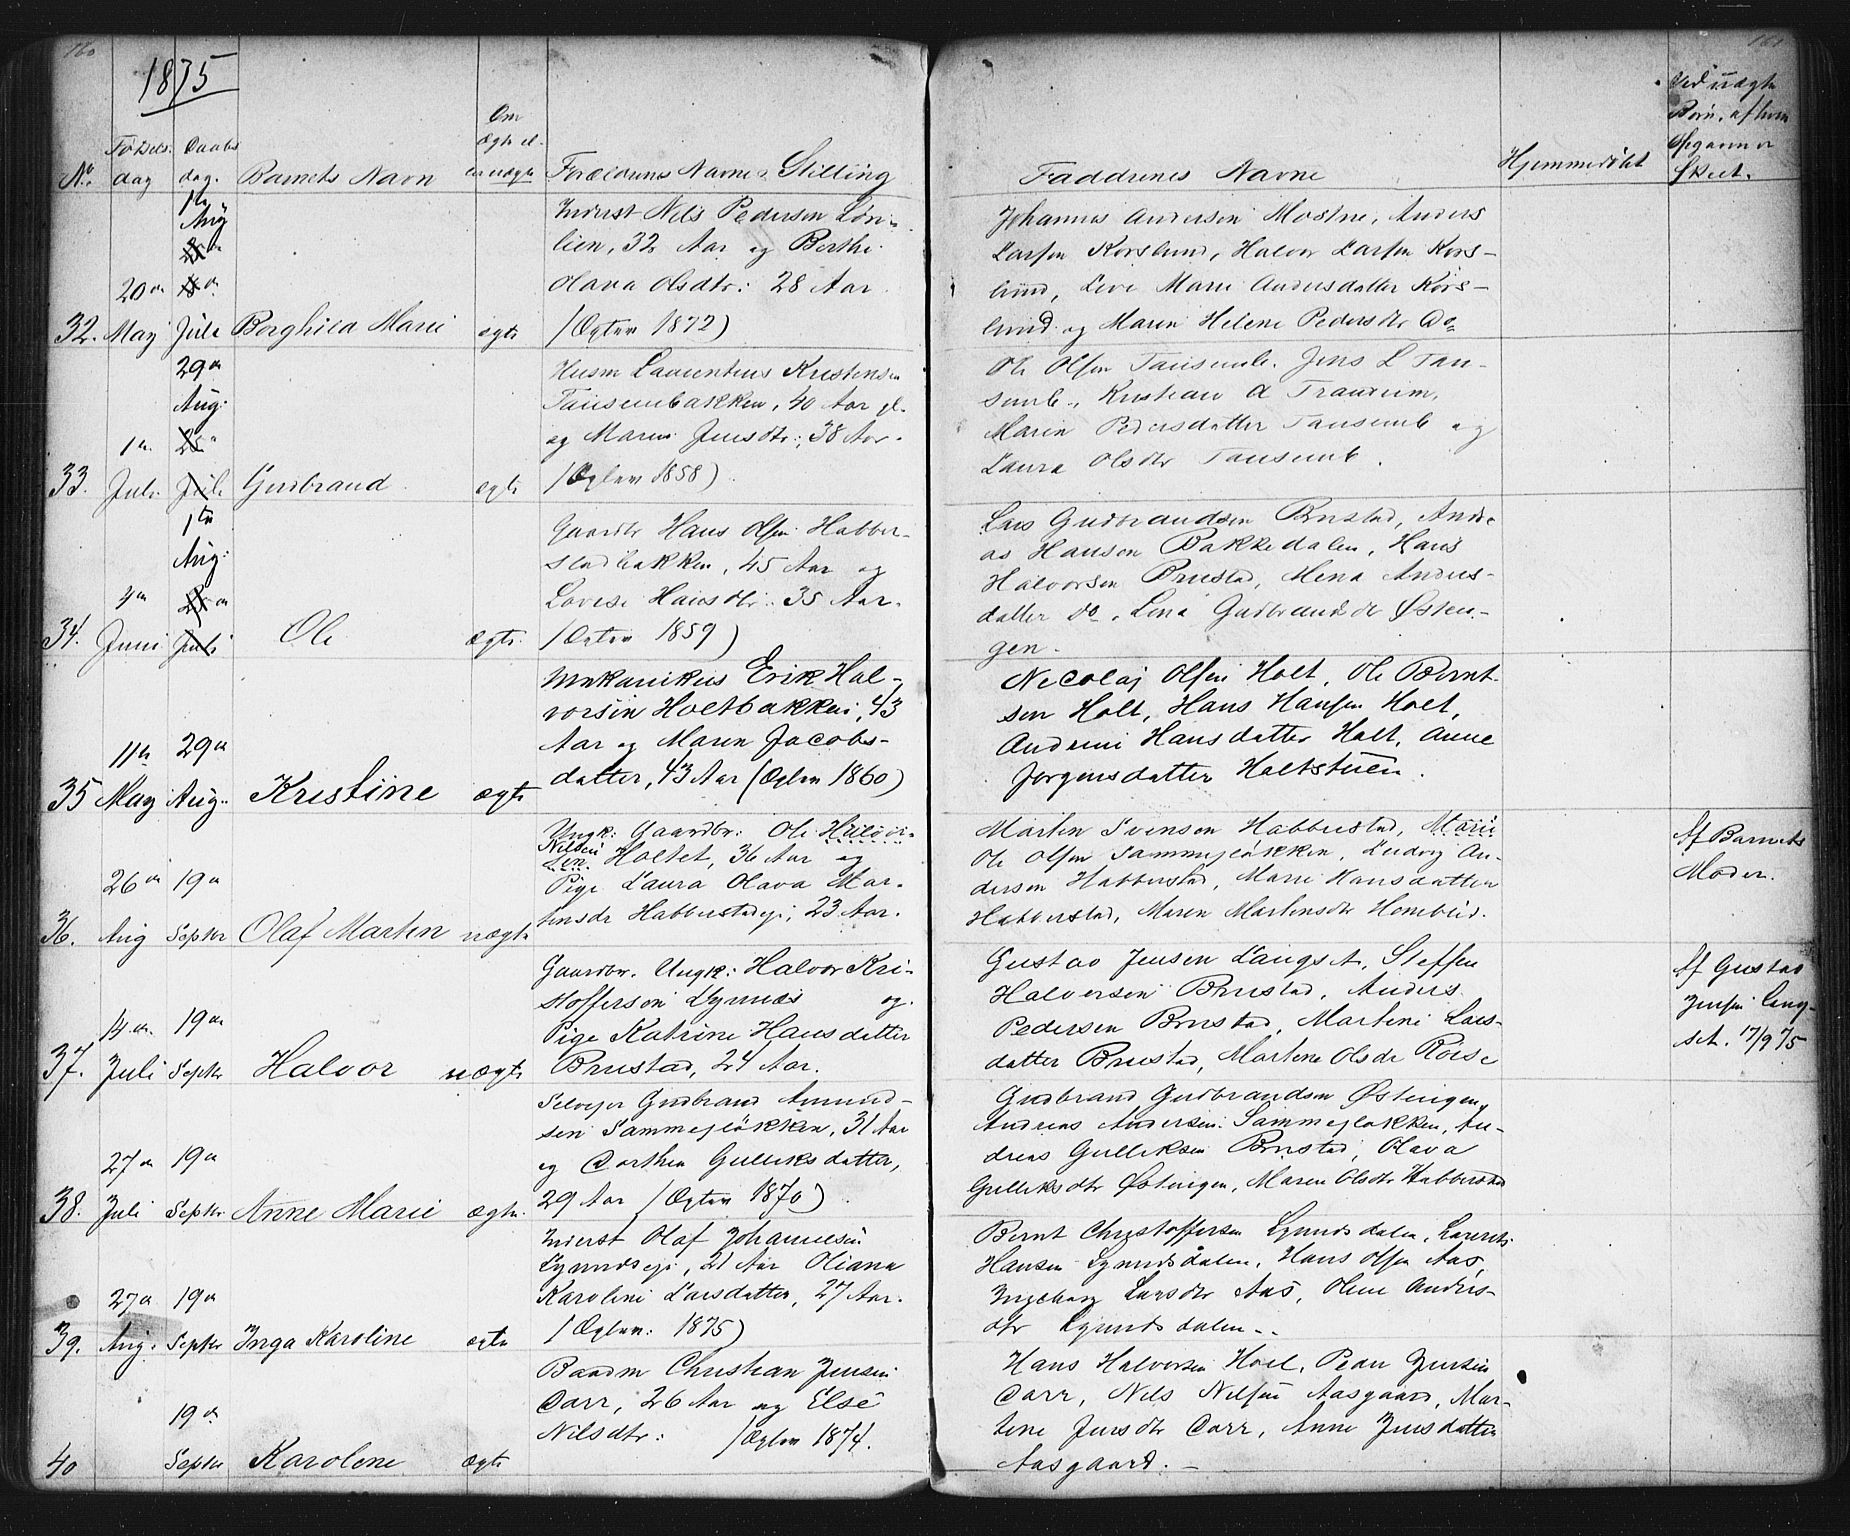 160
161
1875
Fødsels-
dag
Daabs
dag.
No.
Barnets Navn
Om
Ægte el.
uægte
Forældrenes Navne, Stilling
Faddrenes Navne
Hjemmedøbt
Ved uægte
Børn, af hvem
Opgaven er
Skeet.
1te
Aug
20de
32. May Juli Borghild Marie ægte
Inderst Nils Pedersen Løn-
lien, 32 Aar og Berthe
Olava Olsdtr: 28 Aar
(Ægtev 1872)
Johannes Andersen Mostue, Anders
Larsen Korslund, Halvor Larsen Kors-
lund, Live Marie Andersdatter Kors-
lund og Maren Helene Pedersdtr Do
29de
Aug:
1te
33. Juli Juli Gudbrand ægte
Husm Laurentius Kristensen
Tausembakken, 40 Aar gl.
og Maren Jensdtr:, 38 Aar.
(Ægtev 1858)
Ole Olsen Tausemb. Jens L Tau-
semb., Kristian A Trandum,
Maren Pedersdatter Tausemb og
Laura Olsdtr Tausemb.
1te
Aug:
4de
34. Juni Juli Ole ægte.
Gaardbr Hans Olsen Habber-
stadbakken, 45 Aar og
Lovise Hansdtr: 35 Aar.
(Ægtev 1859)
Lars Gudbrandsen Brustad, Andre-
as Hansen Bakkedalen, Hans
Halvorsen Brustad, Mena Anders-
datter Do, Lina Gudbrandsdr Østen-
gen.
11te 29de
35 May Aug. Kristine ægte
Mekanikus Erik Hal-
vorsen Holtbakken, 43
Aar og Maren Jacobs-
datter, 43 Aar (Ægtev 1860)
Nicolaj Olsen Holt, Ole Bernt-
sen Holt, Hans Hansen Holt,
Andrine Hansdatter Holt, Anne
Jørgensdatter Holtstuen.
26de 19de
36. Aug Septbr Olaf Martin uægte
Ungk: Gaardbr: Ole
Nilsen
sen Holtet, 36 Aar og
Pige Laura Olava Mar-
tinsdr Habberstadeje, 23 Aar.
Martin Svensen Habberstad, Marie
Ole Olsen Sammejløkken, Ludvig An-
dersen Habberstad, Marie Hansdatter
Habberstad, Maren Martinsdtr
Af Barnets
Moder.
14de 19de
37. Juli Septbr Halvor uægte
Gaardbr. Ungk: Halvor Kri-
stoffersen Lynnæs og
Pige Katrine Hansdatter
Brustad, 24 Aar.
Gustav Jensen Langset, Steffen
Halvorsen Brustad, Anders
Pedersen Brustad, Martine Lars-
datter Brustad, Martine Olsdr Roise
Af Gustav
Jensen Lang-
set. 17/9 75
27de 19de
38. Juli Septbr Anne Marie ægte.
Selvejer Gudbrand Amund-
sen Sammejløkken, 31 Aar
og Dorthea Gulliksdatter,
29 Aar (Ægtev 1870)
Gudbrand Gudbrandsen Østengen,
Andreas Andersen Sammejløkken, An-
dreas Gulliksen Brustad, Olava
Gulliksdtr Østengen, Maren Olsdtr Habberstad
27de 19de
39. Aug. Septbr Inga Karoline ægte
Inderst Olaf Johannesen
Lynnæseje, 21 Aar Oliana
Karoline Larsdatter, 27 Aar.
(Ægtev: 1875)
Bernt Christoffersen Lynnæsdalen, Laurits
Hansen Lynnæsdalen, Hans Olsen Aas,
Ingeborg Larsdtr Aas, Oline Anders-
dtr Lynnæsdalen.
19de
40 Septbr Karolene ægte
Baadm Christian Jensen
Dorr, 26 Aar og Else
Nilsdtr: (Ægtev 1874.
Hans Halvorsen Hoel, Peder Jensen
Dorr, Nils Nilsen Aasgaard, Mar-
tine Jensdtr Dorr, Anne Jensdatter
Aasgaard.